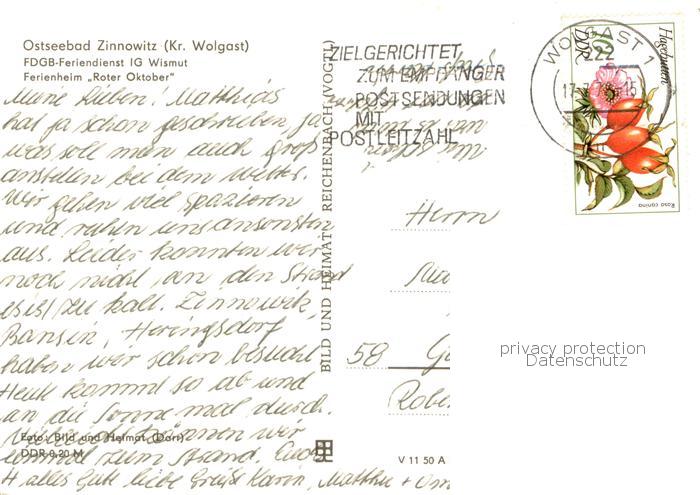 Ostseebad Zinnowitz (Kr. Wolgast)
FDGB-Feriendienst IG Wismut
Ferienheim „Roter Oktober"
Meine Lieben! Matthias
hat ja schon geschrieben, ja
was soll man auch groß
anstellen bei dem Wetter.
Wir gehen viel spazieren
und ruhen uns ansonsten
aus. Leider konnten wir
noch nicht an den Strand
es ist zu kalt. Zinnowitz,
Bansin, Heringsdorf
haben wir schon besucht
Heute kommt so ab und
an die Sonne mal durch.
Vielleicht können wir
einmal zum Strand. Euch
alles Gute liebe Grüße Karin, Matthias + Om
Foto: Bild und Heimat (Darr)
DDR 0,20 M
BILD UND HEIMAT REICHENBACH (VOGTL)
V 11 50 A
ZIELGERICHTET
ZUM EMPFÄNGER
POSTSENDUNGEN
MIT
POSTLEITZAHL
WOLGAST 1
222
Hagebutten
DDR
Rosa canina
Herrn
58 G
Robe
privacy protection
Datenschutz